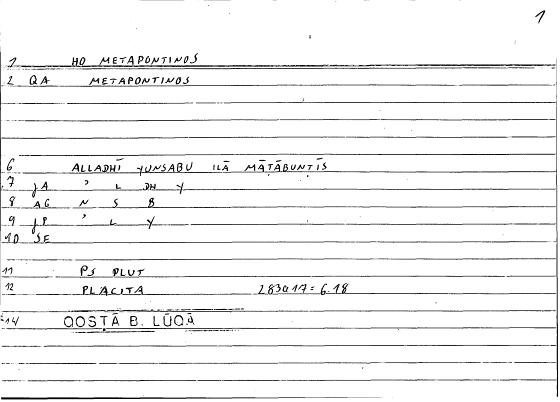 1
1 HO METAPONTINOS
2 QA METAPONTINOS
6 ALLADHĪ YUNSABU ILĀ MĀTĀBUNTĪS
7 JA ʾ L DH Y
8 AG N S B
9 JP ʾ L Y
10 SE
11 PS PLUT
12 PLACITA 283a17 = 6.18
14 QOSṬĀ B. LŪQĀ